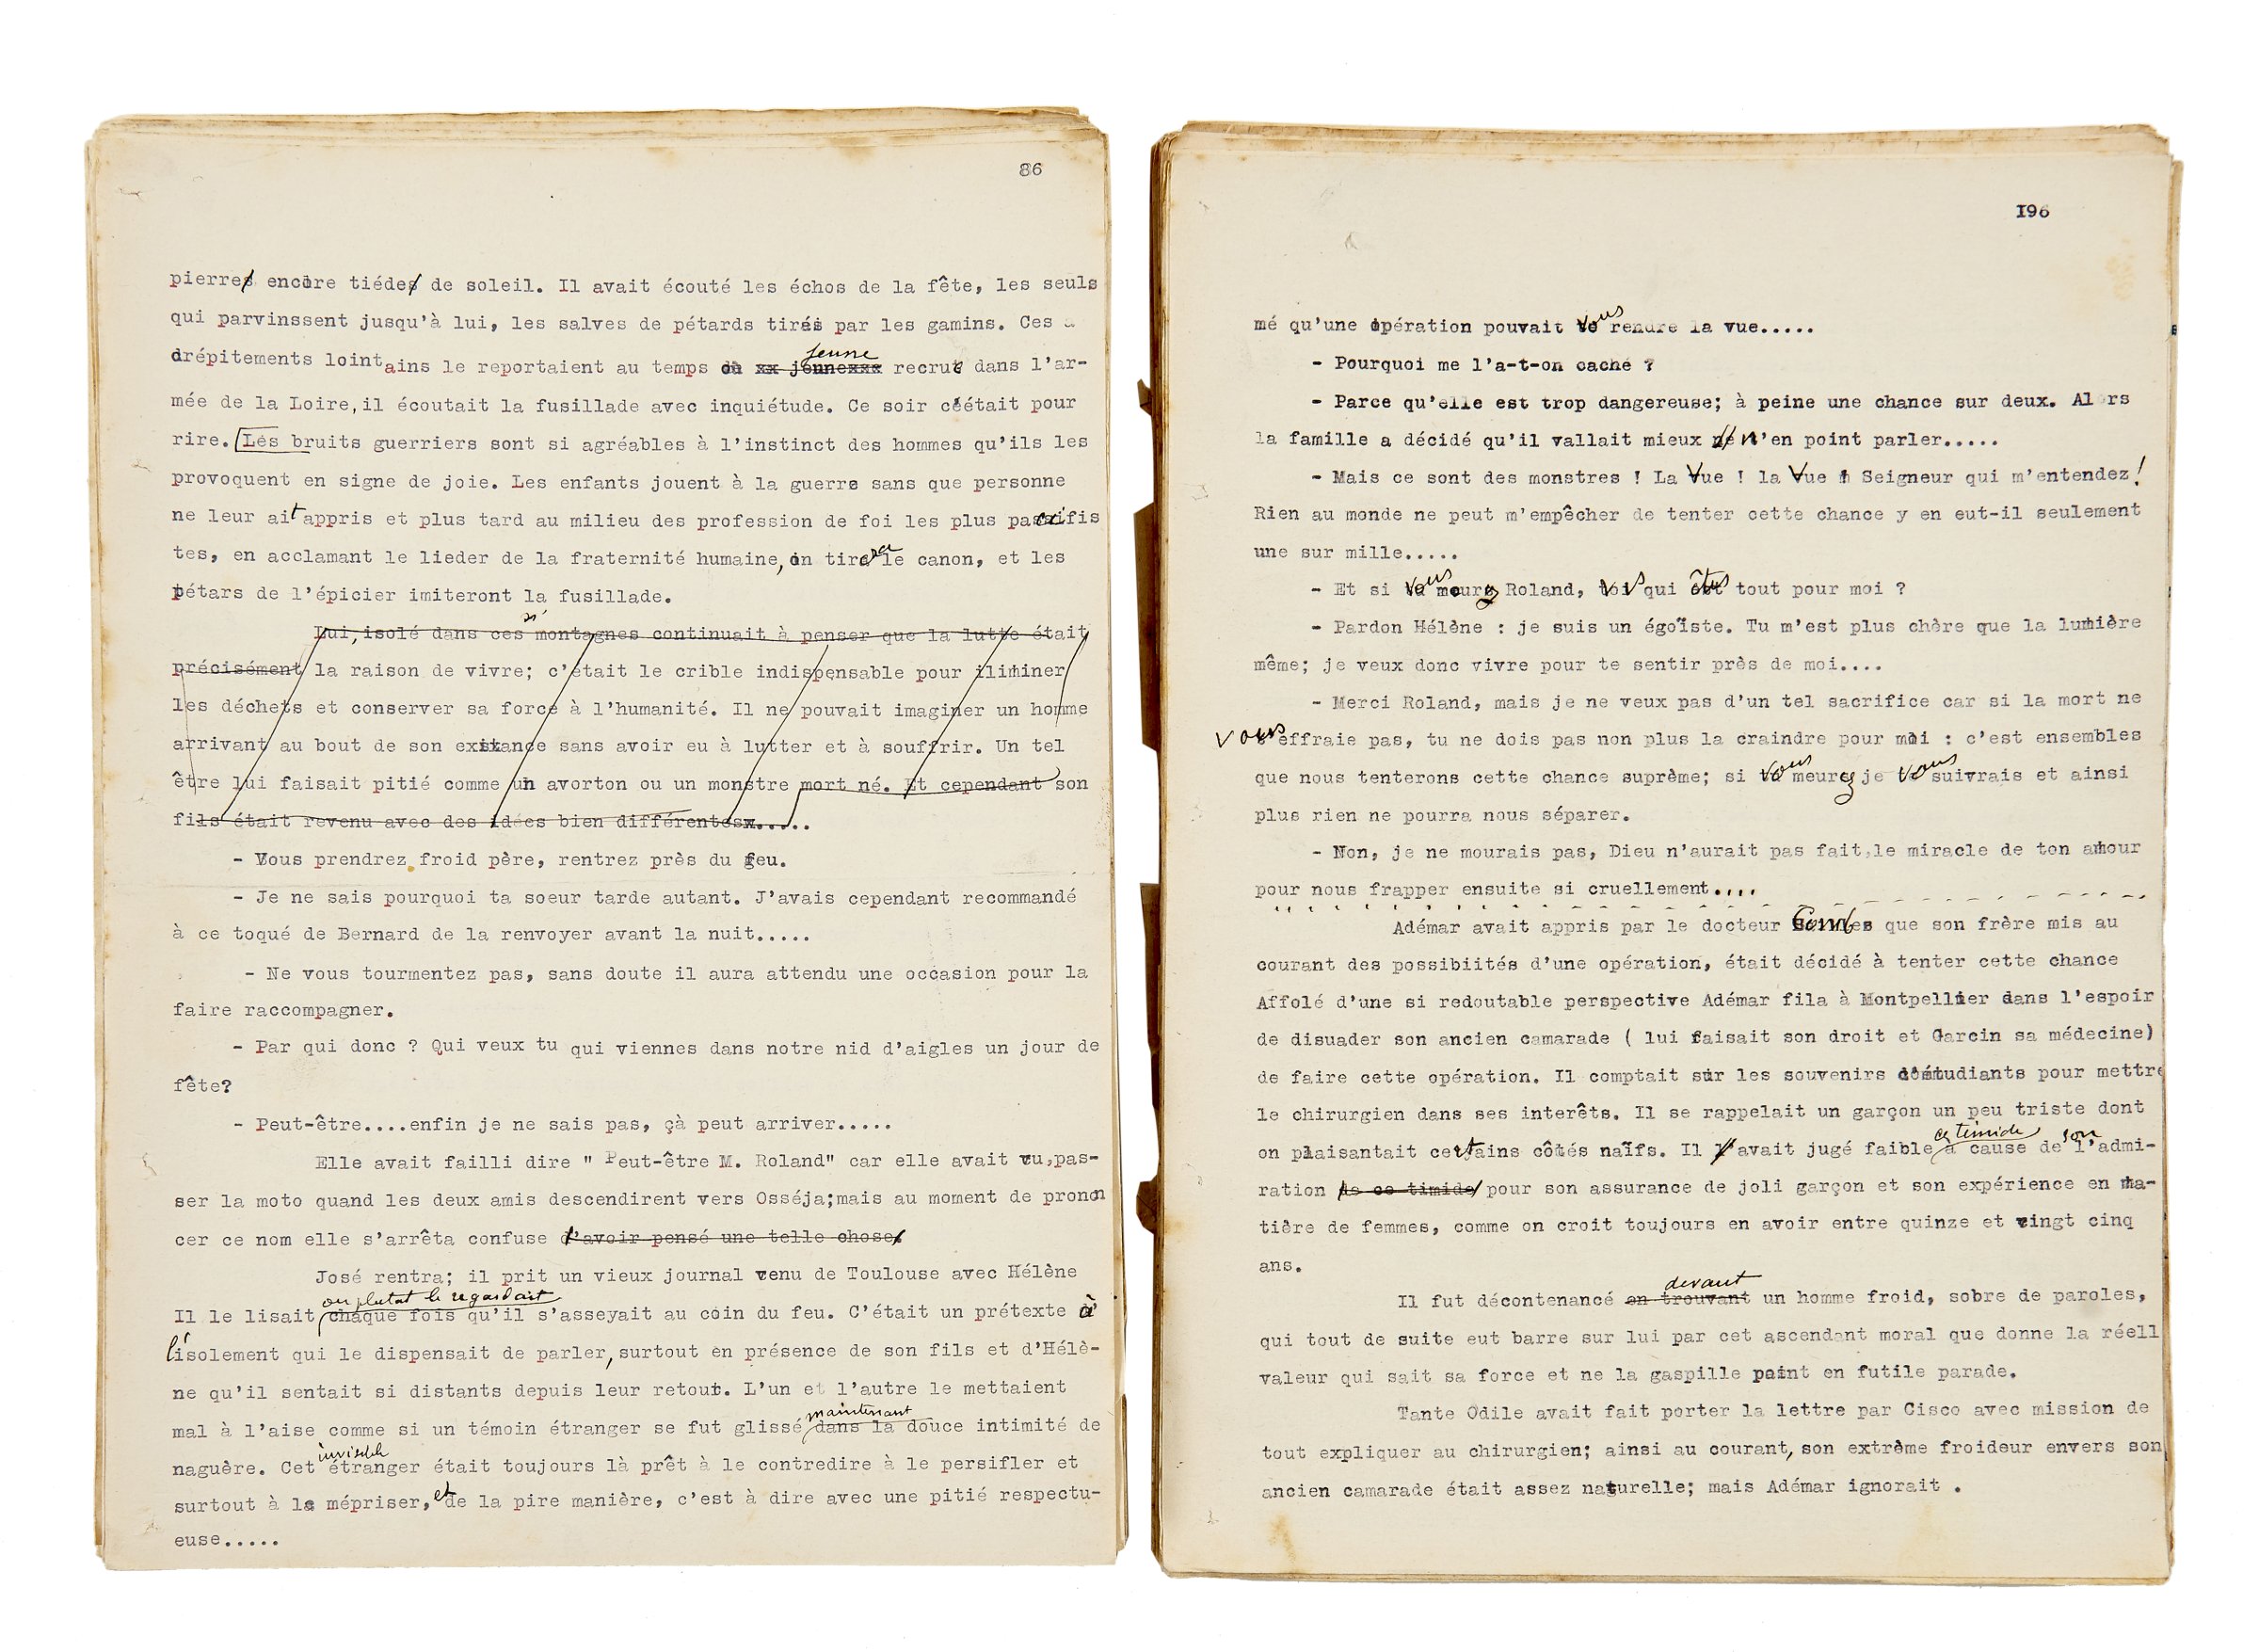 86
pierres encore tiédes de soleil. Il avait écouté les échos de la fête, les seuls
qui parvinssent jusqu'à lui, les salves de pétards tirés par les gamins. Ces
drépitements lointains le reportaient au temps où jeune recrue dans l'ar-
mée de la Loire, il écoutait la fusillade avec inquiétude. Ce soir céétait pour
rire. Les bruits guerriers sont si agréables à l'instinct des hommes qu'ils les
provoquent en signe de joie. Les enfants jouent à la guerre sans que personne
ne leur ait appris et plus tard au milieu des profession de foi les plus pacifis
tes, en acclamant le lieder de la fraternité humaine, on tirera le canon, et les
pétars de l'épicier imiteront la fusillade.
Lui, isolé dans ces montagnes continuait à penser que la lutte était
précisément la raison de vivre; c'était le crible indispensable pour iliminer
les déchets et conserver sa force à l'humanité. Il ne pouvait imaginer un homme
arrivant au bout de son existance sans avoir eu à lutter et à souffrir. Un tel
être lui faisait pitié comme un avorton ou un monstre mort né. Et cependant son
fils était revenu avec des idées bien différentes.....
- Vous prendrez froid père, rentrez près du feu.
- Je ne sais pourquoi ta soeur tarde autant. J'avais cependant recommandé
à ce toqué de Bernard de la renvoyer avant la nuit.....
- Ne vous tourmentez pas, sans doute il aura attendu une occasion pour la
faire raccompagner.
- Par qui donc ? Qui veux tu qui viennes dans notre nid d'aigles un jour de
fête?
- Peut-être....enfin je ne sais pas, çà peut arriver.....
Elle avait failli dire " Peut-être M. Roland" car elle avait vu,pas-
ser la moto quand les deux amis descendirent vers Osséja;mais au moment de pronon
cer ce nom elle s'arrêta confuse d'avoir pensé une telle chose.
José rentra; il prit un vieux journal venu de Toulouse avec Hélène
ou plutot le regardait
Il le lisait chaque fois qu'il s'asseyait au coin du feu. C'était un prétexte à
l'isolement qui le dispensait de parler, surtout en présence de son fils et d'Hélè-
ne qu'il sentait si distants depuis leur retour. L'un et l'autre le mettaient
maintenant
mal à l'aise comme si un témoin étranger se fut glissé dans la douce intimité de
invisible
naguère. Cet étranger était toujours là prêt à le contredire à le persifler et
surtout à le mépriser, et de la pire manière, c'est à dire avec une pitié respectu-
euse.....
196
mé qu'une opération pouvait vous rendre la vue.....
- Pourquoi me l'a-t-on caché ?
- Parce qu'elle est trop dangereuse; à peine une chance sur deux. Alors
la famille a décidé qu'il vallait mieux n'en point parler.....
- Mais ce sont des monstres ! La Vue ! la Vue ! Seigneur qui m'entendez !
Rien au monde ne peut m'empêcher de tenter cette chance y en eut-il seulement
une sur mille.....
- Et si vous mourez Roland, vous qui êtes tout pour moi ?
- Pardon Hélène : je suis un égoïste. Tu m'est plus chère que la lumière
même; je veux donc vivre pour te sentir près de moi....
- Merci Roland, mais je ne veux pas d'un tel sacrifice car si la mort ne
vous effraie pas, tu ne dois pas non plus la craindre pour moi : c'est ensembles
que nous tenterons cette chance suprème; si vous meurez je vous suivrais et ainsi
plus rien ne pourra nous séparer.
- Non, je ne mourais pas, Dieu n'aurait pas fait,le miracle de ton amour
pour nous frapper ensuite si cruellement....
Adémar avait appris par le docteur que son frère mis au
courant des possibiités d'une opération, était décidé à tenter cette chance
Affolé d'une si redoutable perspective Adémar fila à Montpellier dans l'espoir
de disuader son ancien camarade ( lui faisait son droit et Garcin sa médecine)
de faire cette opération. Il comptait sur les souvenirs d'étudiants pour mettre
le chirurgien dans ses interêts. Il se rappelait un garçon un peu triste dont
on plaisantait certains côtés naïfs. Il l'avait jugé faible ce timide à cause de son l'admi-
ration de ce timide pour son assurance de joli garçon et son expérience en ma-
tière de femmes, comme on croit toujours en avoir entre quinze et vingt cinq
ans.
devant
Il fut décontenancé en trouvant un homme froid, sobre de paroles,
qui tout de suite eut barre sur lui par cet ascendant moral que donne la réell
valeur qui sait sa force et ne la gaspille point en futile parade.
Tante Odile avait fait porter la lettre par Cisco avec mission de
tout expliquer au chirurgien; ainsi au courant, son extrème froideur envers son
ancien camarade était assez naturelle; mais Adémar ignorait .